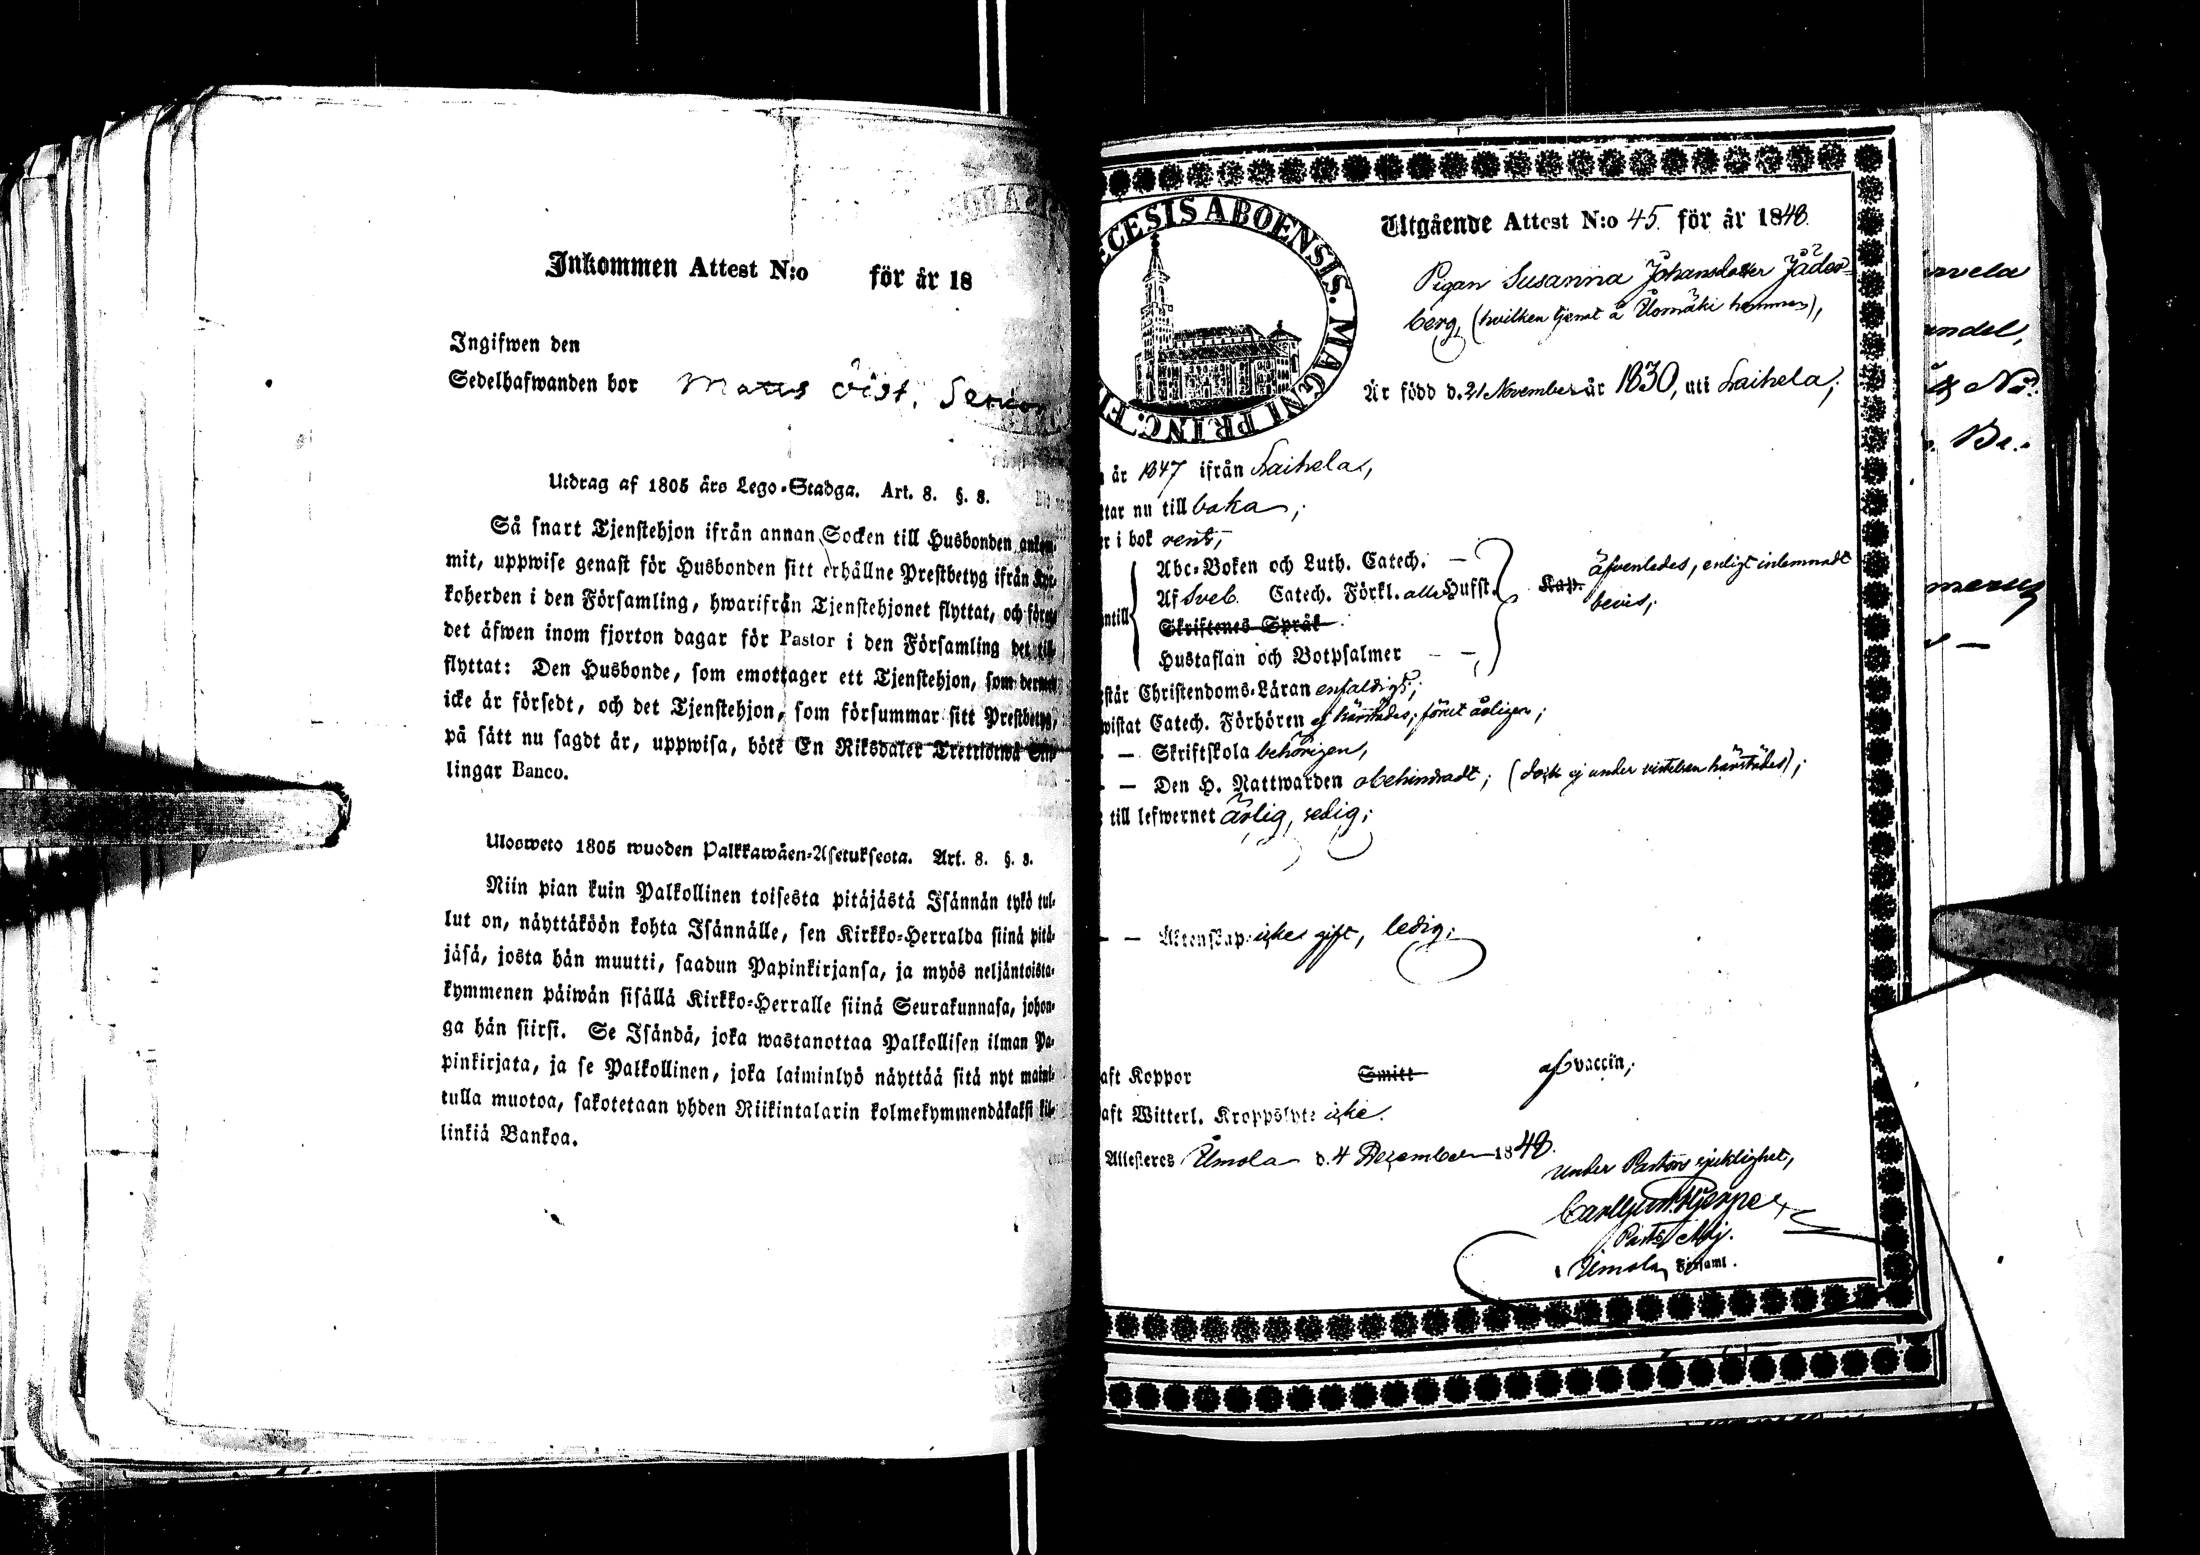 Inkommen Attest N:o för år 18
Ingifwen den
Sedelhafwanden bor Matts Öist, Senior
Utdrag af 1805 års Lego-Stadga. Art. 8. §. 8.
Så snart Tjenstehjon ifrån annan Socken till Husbonden ankom-
mit, uppwise genast för Husbonden sitt erhållne Prestbetyg ifrån Kyr-
koherden i den Församling, hwarifrån Tjenstehjonet flyttat, och förete
det äfwen inom fjorton dagar för Pastor i den Församling det till-
flyttat: Den Husbonde, som emottager ett Tjenstehjon, som dermed
icke är försedt, och det Tjenstehjon, som försummar sitt Prestbetyg,
på sätt nu sagdt är, uppwisa, böte En Riksdaler Trettiotwå Skil-
lingar Banco.
Ulosweto 1805 wuoden Palkkawäen-Asetuksesta. Art. 8. §. 8.
Niin pian kuin Palkollinen toisesta pitäjästä Isännän tykö tul-
lut on, näyttäköön kohta Isännälle, sen Kirkko-Herralda siinä pitä-
jäsä, josta hän muutti, saadun Papinkirjansa, ja myös neljäntoista-
kymmenen päiwän sisällä Kirkko-Herralle siinä Seurakunnasa, johon-
ga hän siirsi. Se Isändä, joka wastanottaa Palkollisen ilman Pa-
pinkirjata, ja se Palkollinen, joka laiminlyö näyttää sitä nyt maini-
tulla muotoa, sakotetaan yhden Riikintalarin kolmekymmendäkaksi kil-
linkiä Bankoa.
ECESIS ABOENSIS. MAGNI PRINC. FI
Utgående Attest N:o 45. för år 1848.
Pigan Susanna Johansdotter Jäder-
berg, (hvilken tjenat å Uomäki hemman),
Är född d. 21 November år 1830, uti Laihela;
år 1847 ifrån Laihela,
ttar nu till baka,
r i bok rent,
Abc-Boken och Luth. Catech. —
Af Sveb. Catech. Förkl. alla Hufst. Kap. äfvenledes, enligt inlemnadt
bevis;
ntill Skriftenes Språk
Hustaflan och Botpsalmer — —,
står Christendoms-Läran enfaldigt;
wistat Catech. Förhören ej härstädes, förut årligen;
— Skriftskola behörigen,
— Den H. Nattwarden obehindradt; (dock ej under vistelsen härstädes);
till lefwernet ärlig, redig;
— — Äktenskap: icke gift, ledig;
aft Koppor Smitt af vaccin;
aft Witterl. Kroppslyte icke.
Attesteres Ilmola d. 4 December 1848.
under Pastors sjuklighet,
Past. Adj.
i Ilmola Församl.